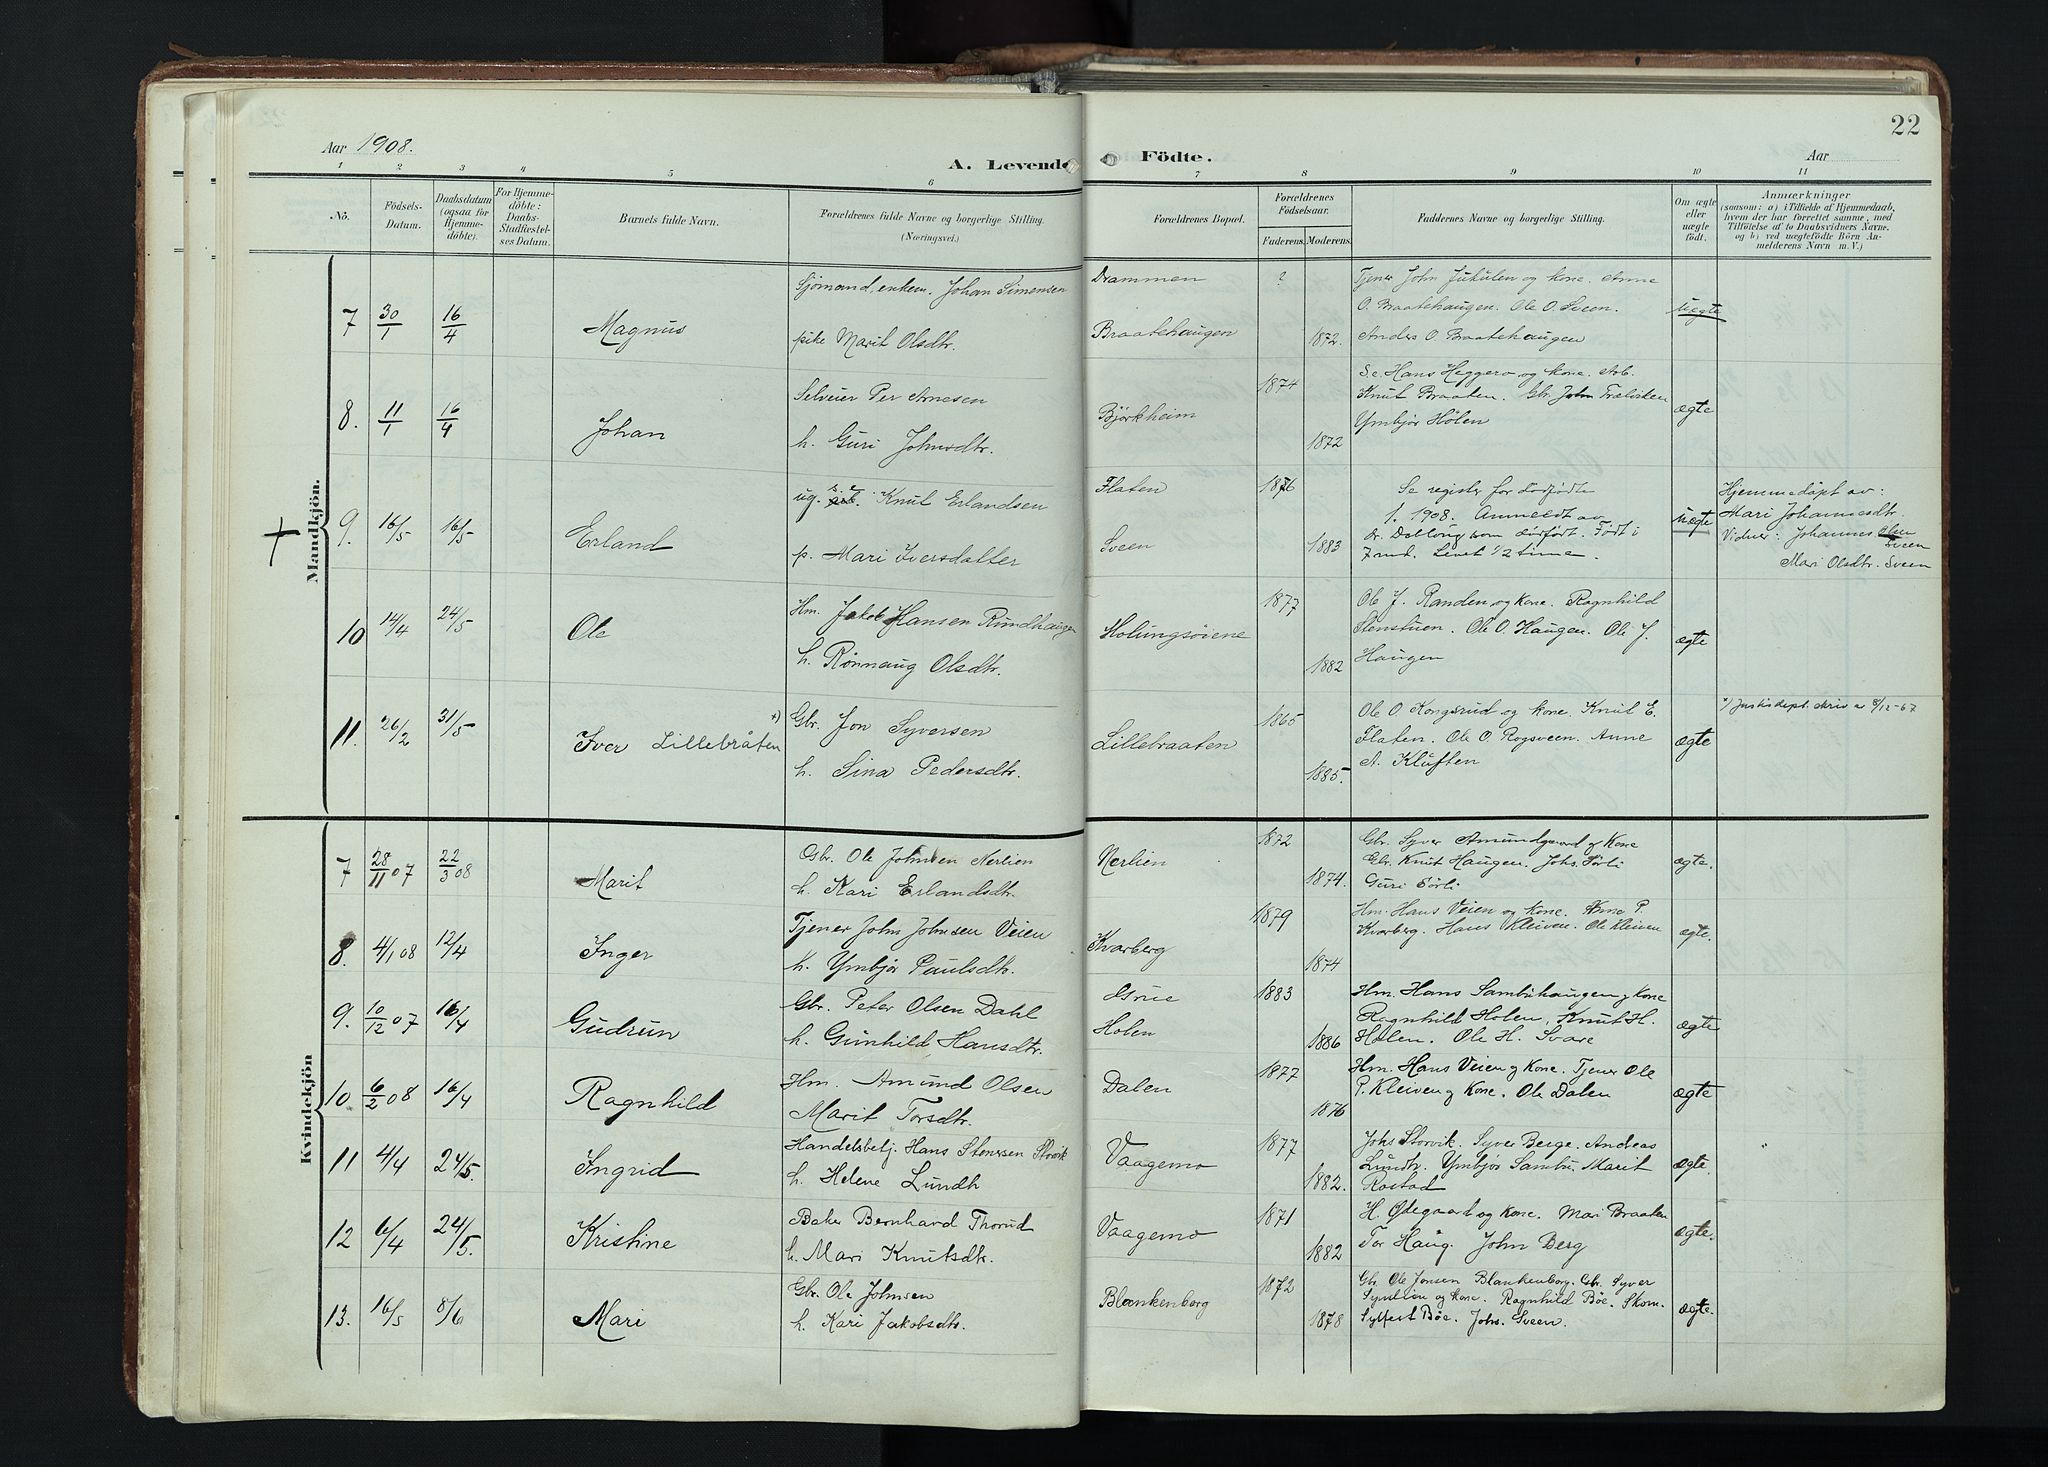 Aar 1908.
A. Levende Födte.
Aar
22
1 2 3 4 5 6 7 8 9 10 11
No.
Födsels-
Datum.
Daabsdatum
(ogsaa for
Hjemme-
döbte).
For Hjemme-
döbte:
Daabs-
Stadfæstel-
ses Datum.
Barnets fulde Navn.
Forældrenes fulde Navne og borgerlige Stilling.
(Næringsvei.)
Forældrenes Bopæl.
Forældrenes
Födselsaar.
Faderens. Moderens.
Faddernes Navne og borgerlige Stilling.
Om ægte
eller
uægte
födt.
Anmærkninger
(saasom: a) i Tilfælde af Hjemmedaab,
hvem der har forrettet samme, med
Tilföielse af to Daabsvidners Navne,
og b) ved uægtefödte Börn An-
melderens Navn m. V.)
Mandkjön.
7 30/1 16/4 Magnus
Sjömand, enkem. Johan Simensen
pike Marit Olsdtr.
Drammen
Braatehaugen
? 1872.
Tjener John Jutulen og kone. Anne
O. Braatehaugen. Ole O. Sveen.
Anders O. Braatehaugen
uegte
8. 11/1 16/4 Johan
Selveier Per Arnesen
h. Guri Johnsdtr.
Björkheim
1874 1872
S.e. Hans Heggerø og kone. Arb.
Knut Braaten. Gbr. John Trælviken
Ymbjør Hölen
ægte
+ 9. 16/5 16/5 Erland
ug. s.e. Knut Erlandsen
p. Mari Iversdatter
Flaten
Sveen
1876 1883
Se register for dödfödte
1. 1908. Anmeldt av
dr. Deblong som dødfødt. Født i
7 md. Levet 1/2 time.
uægte
Hjemmedöpt av:
Mari Johannesdtr.
Vidner: Johannes Olsen
Sveen
Mari Olsdtr. Sveen
10 14/4 24/5 Ole
Hm. Jakob Hansen Rundhaugen
h. Rönnaug Olsdtr.
Holungsöiene
1877 1882
Ole J. Randen og kone. Ragnhild
Stenstuen. Ole O. Haugen. Ole J.
Haugen
ægte
11. 26/2 31/5 Iver Lillebråten x)
Gbr. Jon Syversen
h. Sina Pedersdtr.
Lillebraaten
1865 1885.
Ole O. Kongsrud og kone. Knut E.
Flaten. Ole O. Rogsveen. Anne
A. Kluften
ægte
x) Justisdept. skriv av 8/12-67
Kvindekjön
7 28/11 07 22/3 08 Marit
Gbr. Ole Johnsen Nerlien
h. Kari Erlandsdtr.
Nerlien
1872 1874.
Gbr. Syver Amundgaard og Kone
Gbr. Knut Haugen. Johs. Sörli
Guri Sörli
ægte.
8. 4/1 08 12/4 Inger
Tjener John Johnsen Veien
h. Ymbjör Paulsdtr.
Kvarberg
1879 1874
Hm. Hans Veien og Kone. Anne P.
Kvarberg. Hans Kleiven. Ole Kleiven
ægte.
9. 10/12 07 16/4 Gudrun
Gbr. Peter Olsen Dahl
h. Gunhild Hansdtr.
Grue
Holen
1883 1886
Hm. Hans Sambuhaugen og Kone
Ragnhild Holen. Knut H.
Holen. Ole H. Svare
ægte
10. 6/2 08 16/4 Ragnhild
Hm. Amund Olsen
Marit Torsdtr.
Dalen
1877 1876
Hm. Hans Veien og Kone. Tjener Ole
P. Kleiven og Kone. Ole Dalen
ægte
11 4/4 24/5. Ingrid
Handelsbetj. Hans Stenssen Storvik
h. Helene Lundh
Vaagemo
1877 1882.
Johs Storvik. Syver Berge. Andreas
Lundh. Ymbjör Sambu. Marit
Rostad
ægte.
12 6/4 24/5. Kristine
Baker Bernhard Thorud
h. Mari Knutsdtr.
Vaagemo
1871 1882
H. Ødegaard og Kone. Mari Braaten
Tor Haug. John Berg
ægte.
13. 16/5 8/6 Mari
Gbr. Ole Johnsen
h. Kari Jakobsdtr.
Blankenborg
1872 1878
Gbr. Ole Jonsen Blankenborg. Gbr. Syver
og Kone. Ragnhild Böe. Skom.
Sylfest Böe. Johs. Sveen.
ægte.